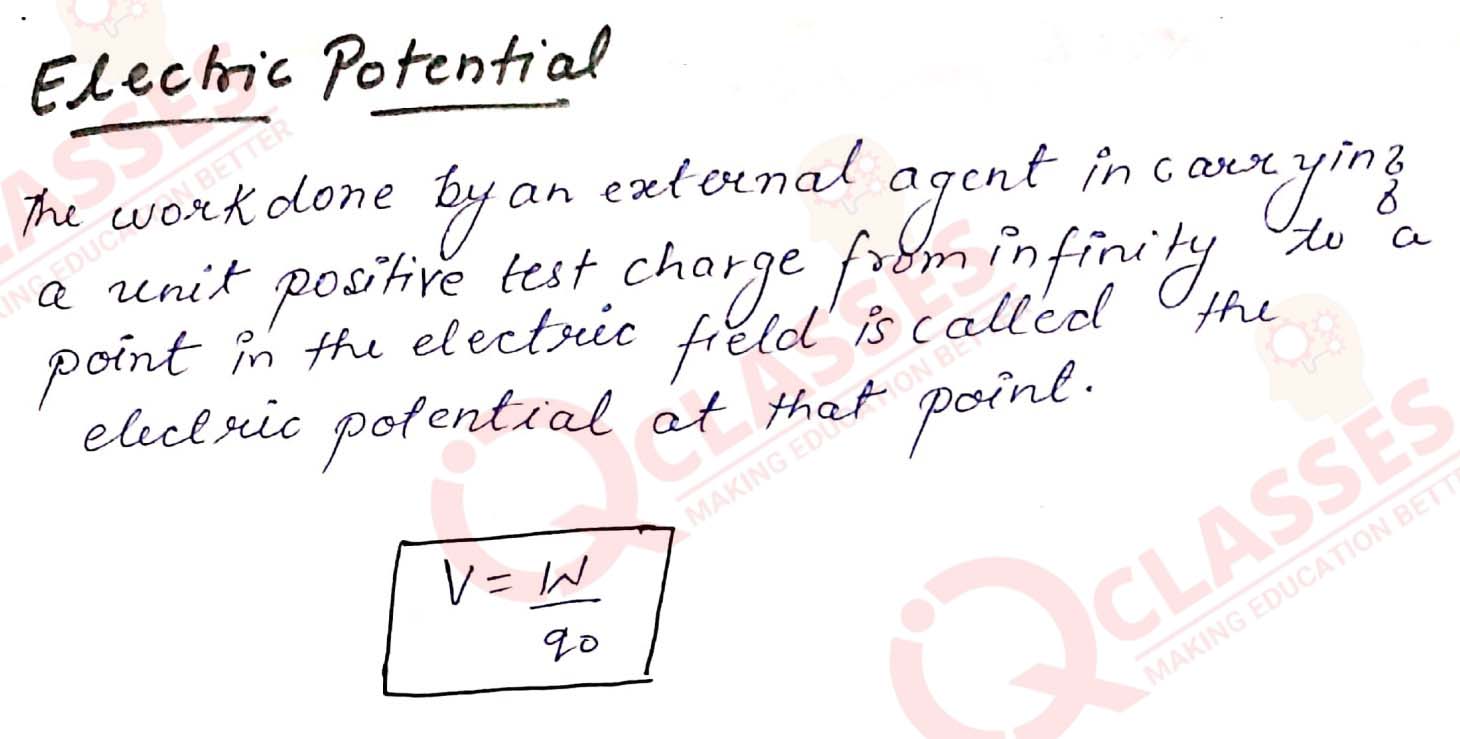 Electric Potential
The work done by an external agent in carrying
a unit positive test charge from infinity to a
point in the electric field is called the
electric potential at that point.
V = W
q0
CLASSES
MAKING EDUCATION BETTER
CLASSES
MAKING EDUCATION BETTER